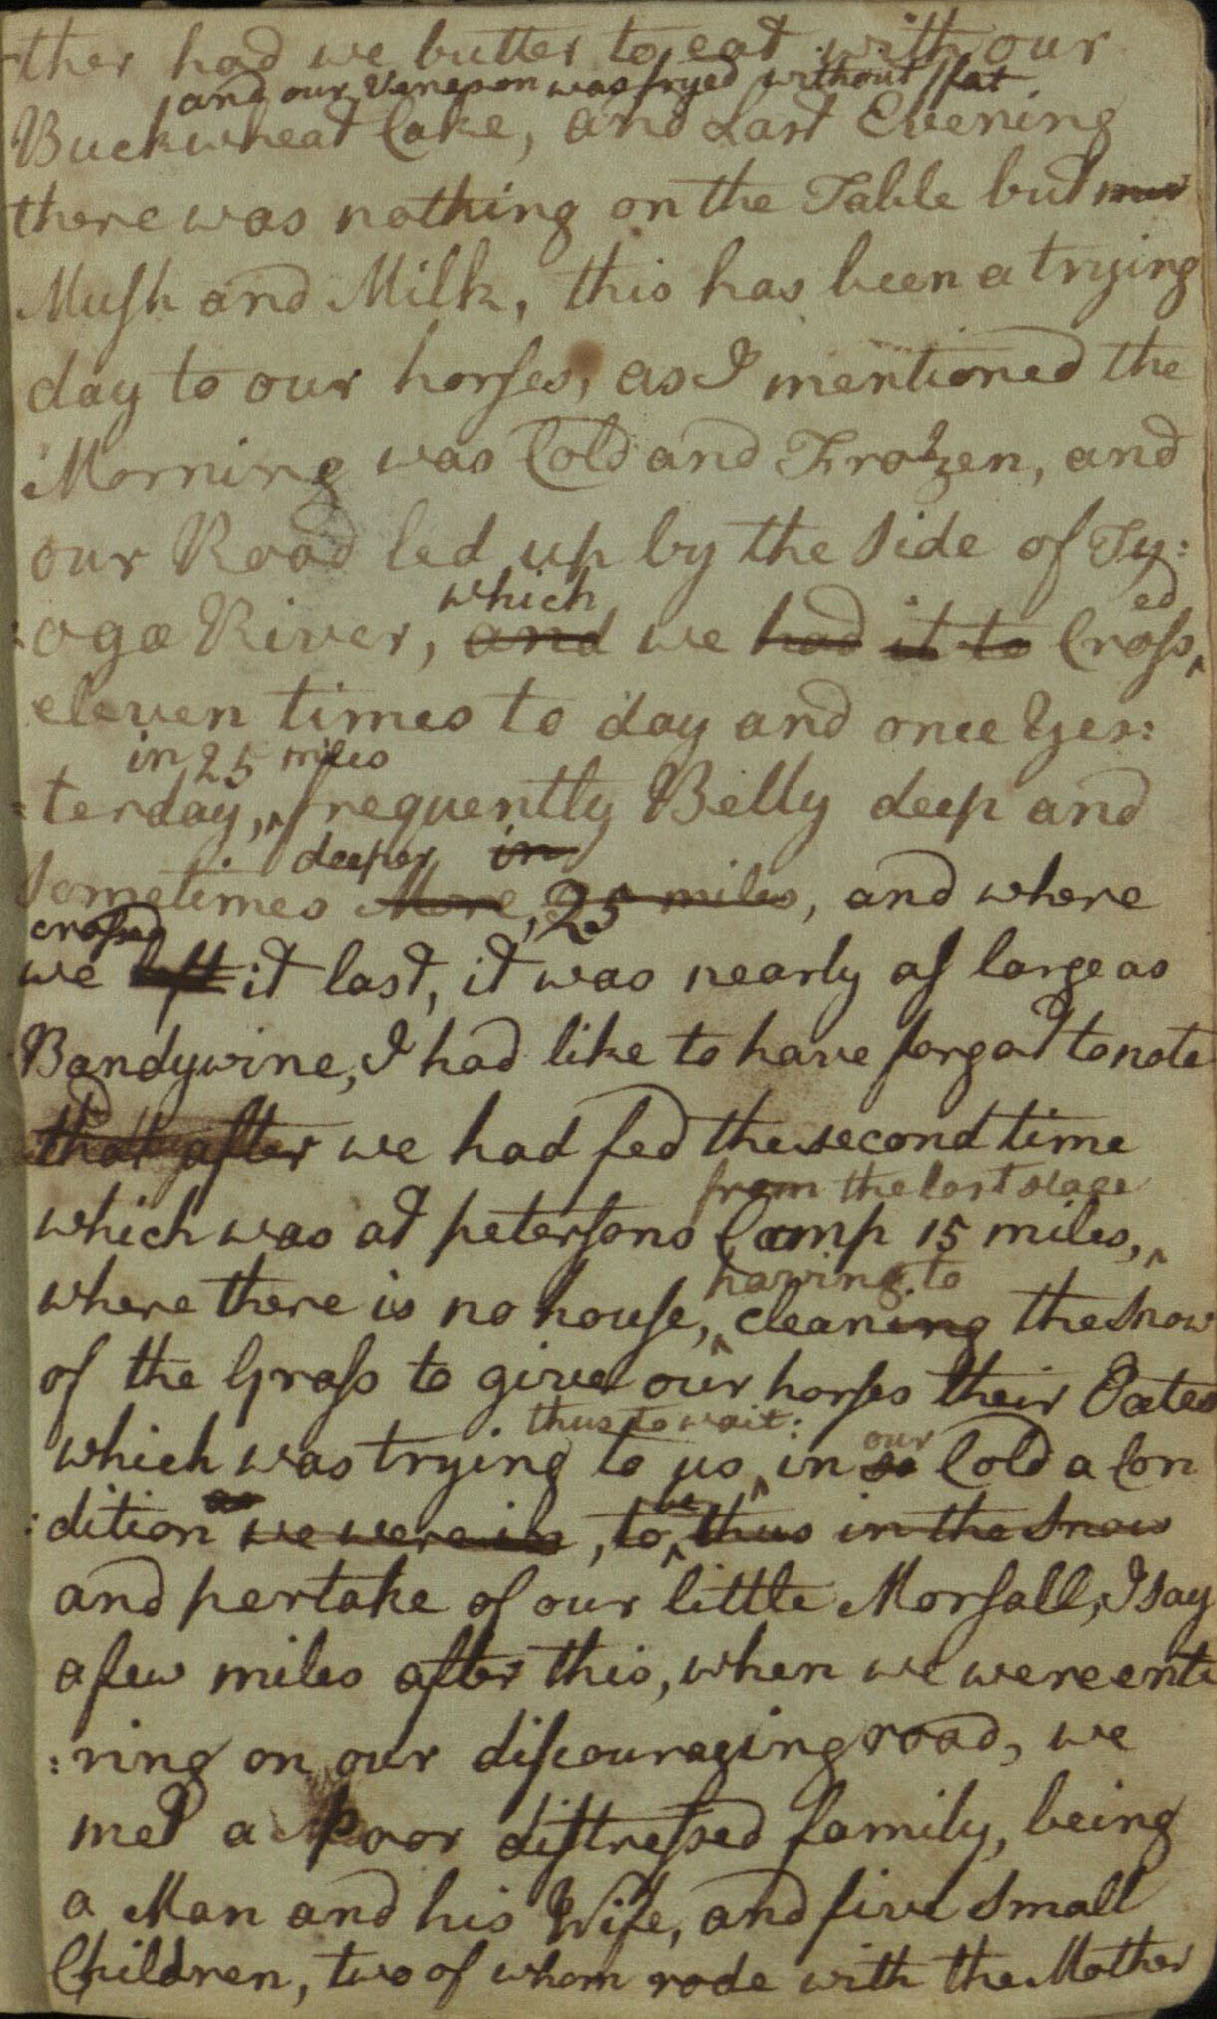 -ther had we butter to eat with our
and our Veneson was fryed without fat
Buckwheat Cake, and Last Evening
there was nothing on the Table but
Mush and Milk, this has been a trying
day to our horses, as I mentioned the
Morning was Cold and Frozen, and
our Road led up by the side of Ty:
which ed
:oga River, and we had it to Cross,
eleven times to day and once Yes:
in 25 miles
:terday, frequently Belly deep and
deeper in
Sometimes More, 25 miles, and where
crossed
we left it last, it was nearly as large as
Bandywine, I had like to have forgot to note
that after we had fed the second time
from the last stage
which was at petersons Camp 15 miles,
having to
where there is no house, cleaning the Snow
of the Grass to give our horses their Oates
thus to wait: our
which was trying to us in so Cold a Con
as
:dition we were in, to thus in the Snow
and pertake of our little Morsall, I say
a few miles after this, when we were ente
:ring on our discouraging road, we
met a Poor distressed family, being
a Man and his Wife, and five Small
Children, two of whom rode with the Mother